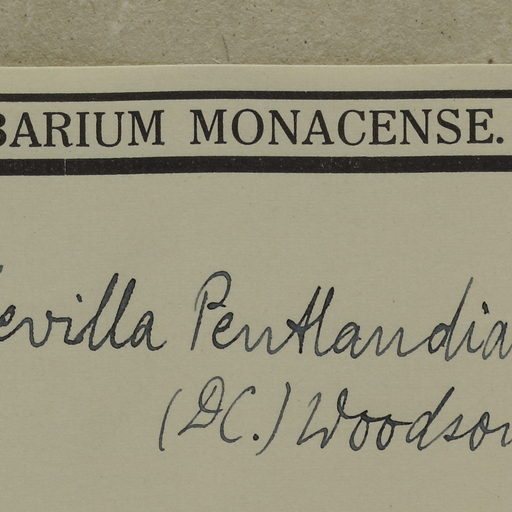 BARIUM MONACENSE.
evilla Pentlandia
(DC.) Woodson